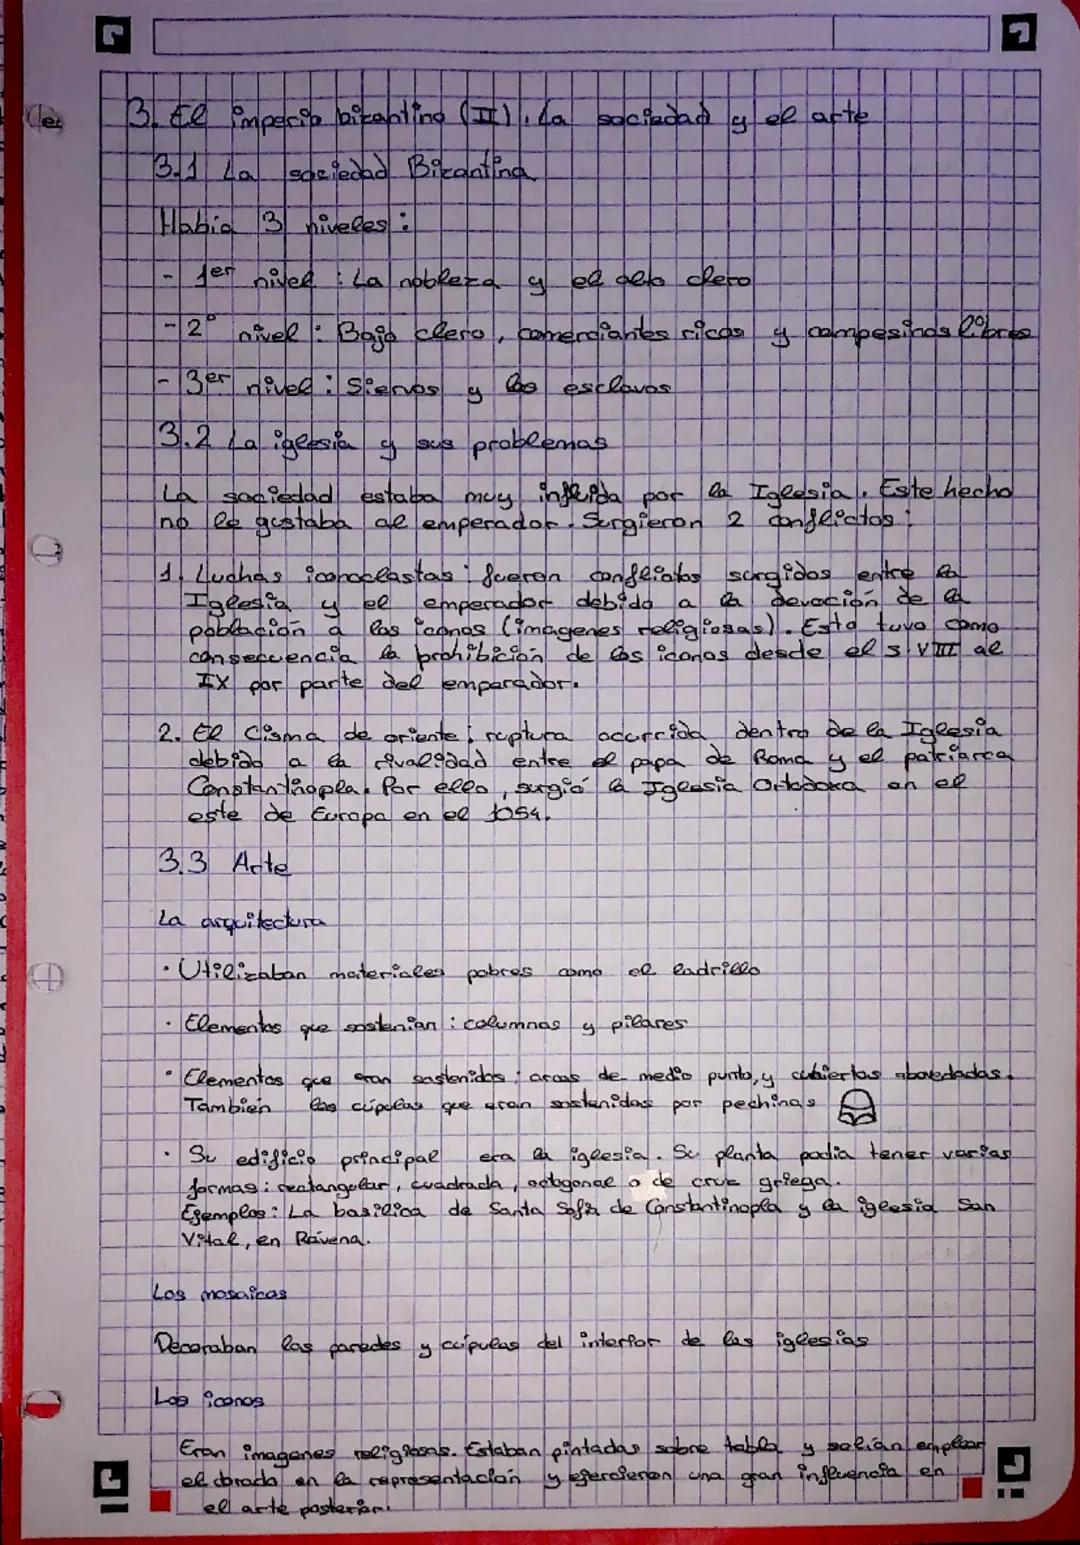 3. El imperio bizantino (II). La sociedad y el arte
3.1 La sociedad Bizantina
Había 3 niveles:
- 1er nivel: La nobleza y el alto clero
- 2º nivel: Bajo clero, comerciantes ricos y campesinos libres
- 3er nivel: Siervos y los esclavos
3.2 La iglesia y sus problemas
La sociedad estaba muy influida por la Iglesia. Este hecho
no le gustaba al emperador. Surgieron 2 conflictos:
1. Luchas iconoclastas: fueron conflictos surgidos entre la
Iglesia y el emperador debido a la devoción de la
población a los iconos (imagenes religiosas). Esto tuvo como
consecuencia la prohibición de los iconos desde el s VIII al
IX por parte del emperador.
2. El Cisma de oriente: ruptura ocurrida dentro de la Iglesia
debido a la rivalidad entre el papa de Roma y el patriarca
Constantinopla. Por ello, surgió la Iglesia Ortodoxa en el
este de Europa en el 1054.
3.3 Arte
La arquitectura
· Utilizaban materiales pobres como el ladrillo
· Elementos que sostenian: columnas y pilares
· Elementos que eran sostenidos: arcos de medio punto, y cubiertas abovedadas.
Tambien las cúpulas que eran sostenidas por pechinas
· Su edificio principal era la iglesia. Su planta podia tener varias
formas: rectangular, cuadrada, octogonal o de cruz griega.
Ejemplos: La basilica de Santa Sofía de Constantinopla y la iglesia San
Vital, en Rávena.
Los mosaicos
Decoraban las paredes y cúpulas del interior de las iglesias
Los iconos
Eran imagenes religiosas. Estaban pintadas sobre tabla y solían emplear
el dorado en la representación y ejercieron una gran influencia en
el arte posterior.